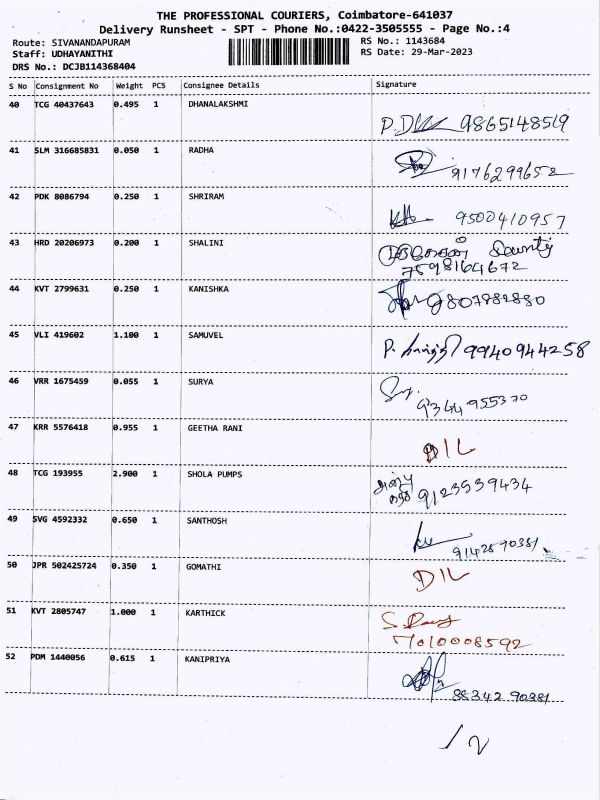 THE PROFESSIONAL COURIERS, Coimbatore-641037
Delivery Runsheet - SPT - Phone No.:0422-3505555 - Page No.:4
Route: SIVANANDAPURAM RS No.: 1143684
Staff: UDHAYANITHI RS Date: 29-Mar-2023
DRS No.: DCJB114368404
S No Consignment No Weight PCS Consignee Details Signature
40 TCG 40437643 0.495 1 DHANALAKSHMI
9865148519
41 SLM 316685831 0.050 1 RADHA
9176299652
42 PDK 8086794 0.250 1 SHRIRAM
9500410957
43 HRD 20206973 0.200 1 SHALINI
7598164672
44 KVT 2799631 0.250 1 KANISHKA
9807982880
45 VLI 419602 1.100 1 SAMUVEL
9940944258
46 VRR 1675459 0.055 1 SURYA
9344955370
47 KRR 5576418 0.955 1 GEETHA RANI
D/L
48 TCG 193955 2.900 1 SHOLA PUMPS
9123539434
49 SVG 4592332 0.650 1 SANTHOSH
9142890381
50 JPR 502425724 0.350 1 GOMATHI
D/L
51 KVT 2805747 1.000 1 KARTHICK
7010008592
52 PDM 1440056 0.615 1 KANIPRIYA
88342 90381